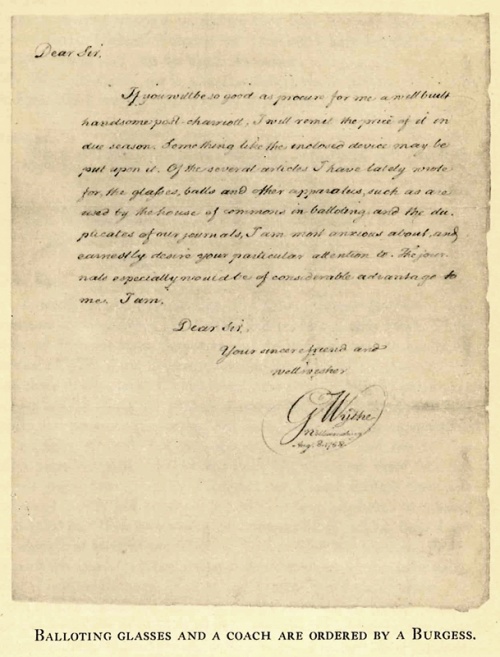 Dear Sir,
If you will be so good as procure for me a well built
handsome post-charriott, I will remit the price of it in
due season. Something like the enclosed device may be
put upon it. Of the several articles I have lately wrote
for, the glasses, balls and other apparatus, such as are
used by the house of commons in balloting, and the du-
plicates of our journals, I am most anxious about, and
earnestly desire your particular attention to. The jour-
nals especially would be of considerable advantage to
me. I am,
Dear Sir,
Your sincere friend and
wellwisher
G Wythe
Williamsburg
Aug. 8. 1768
BALLOTING GLASSES AND A COACH ARE ORDERED BY A BURGESS.